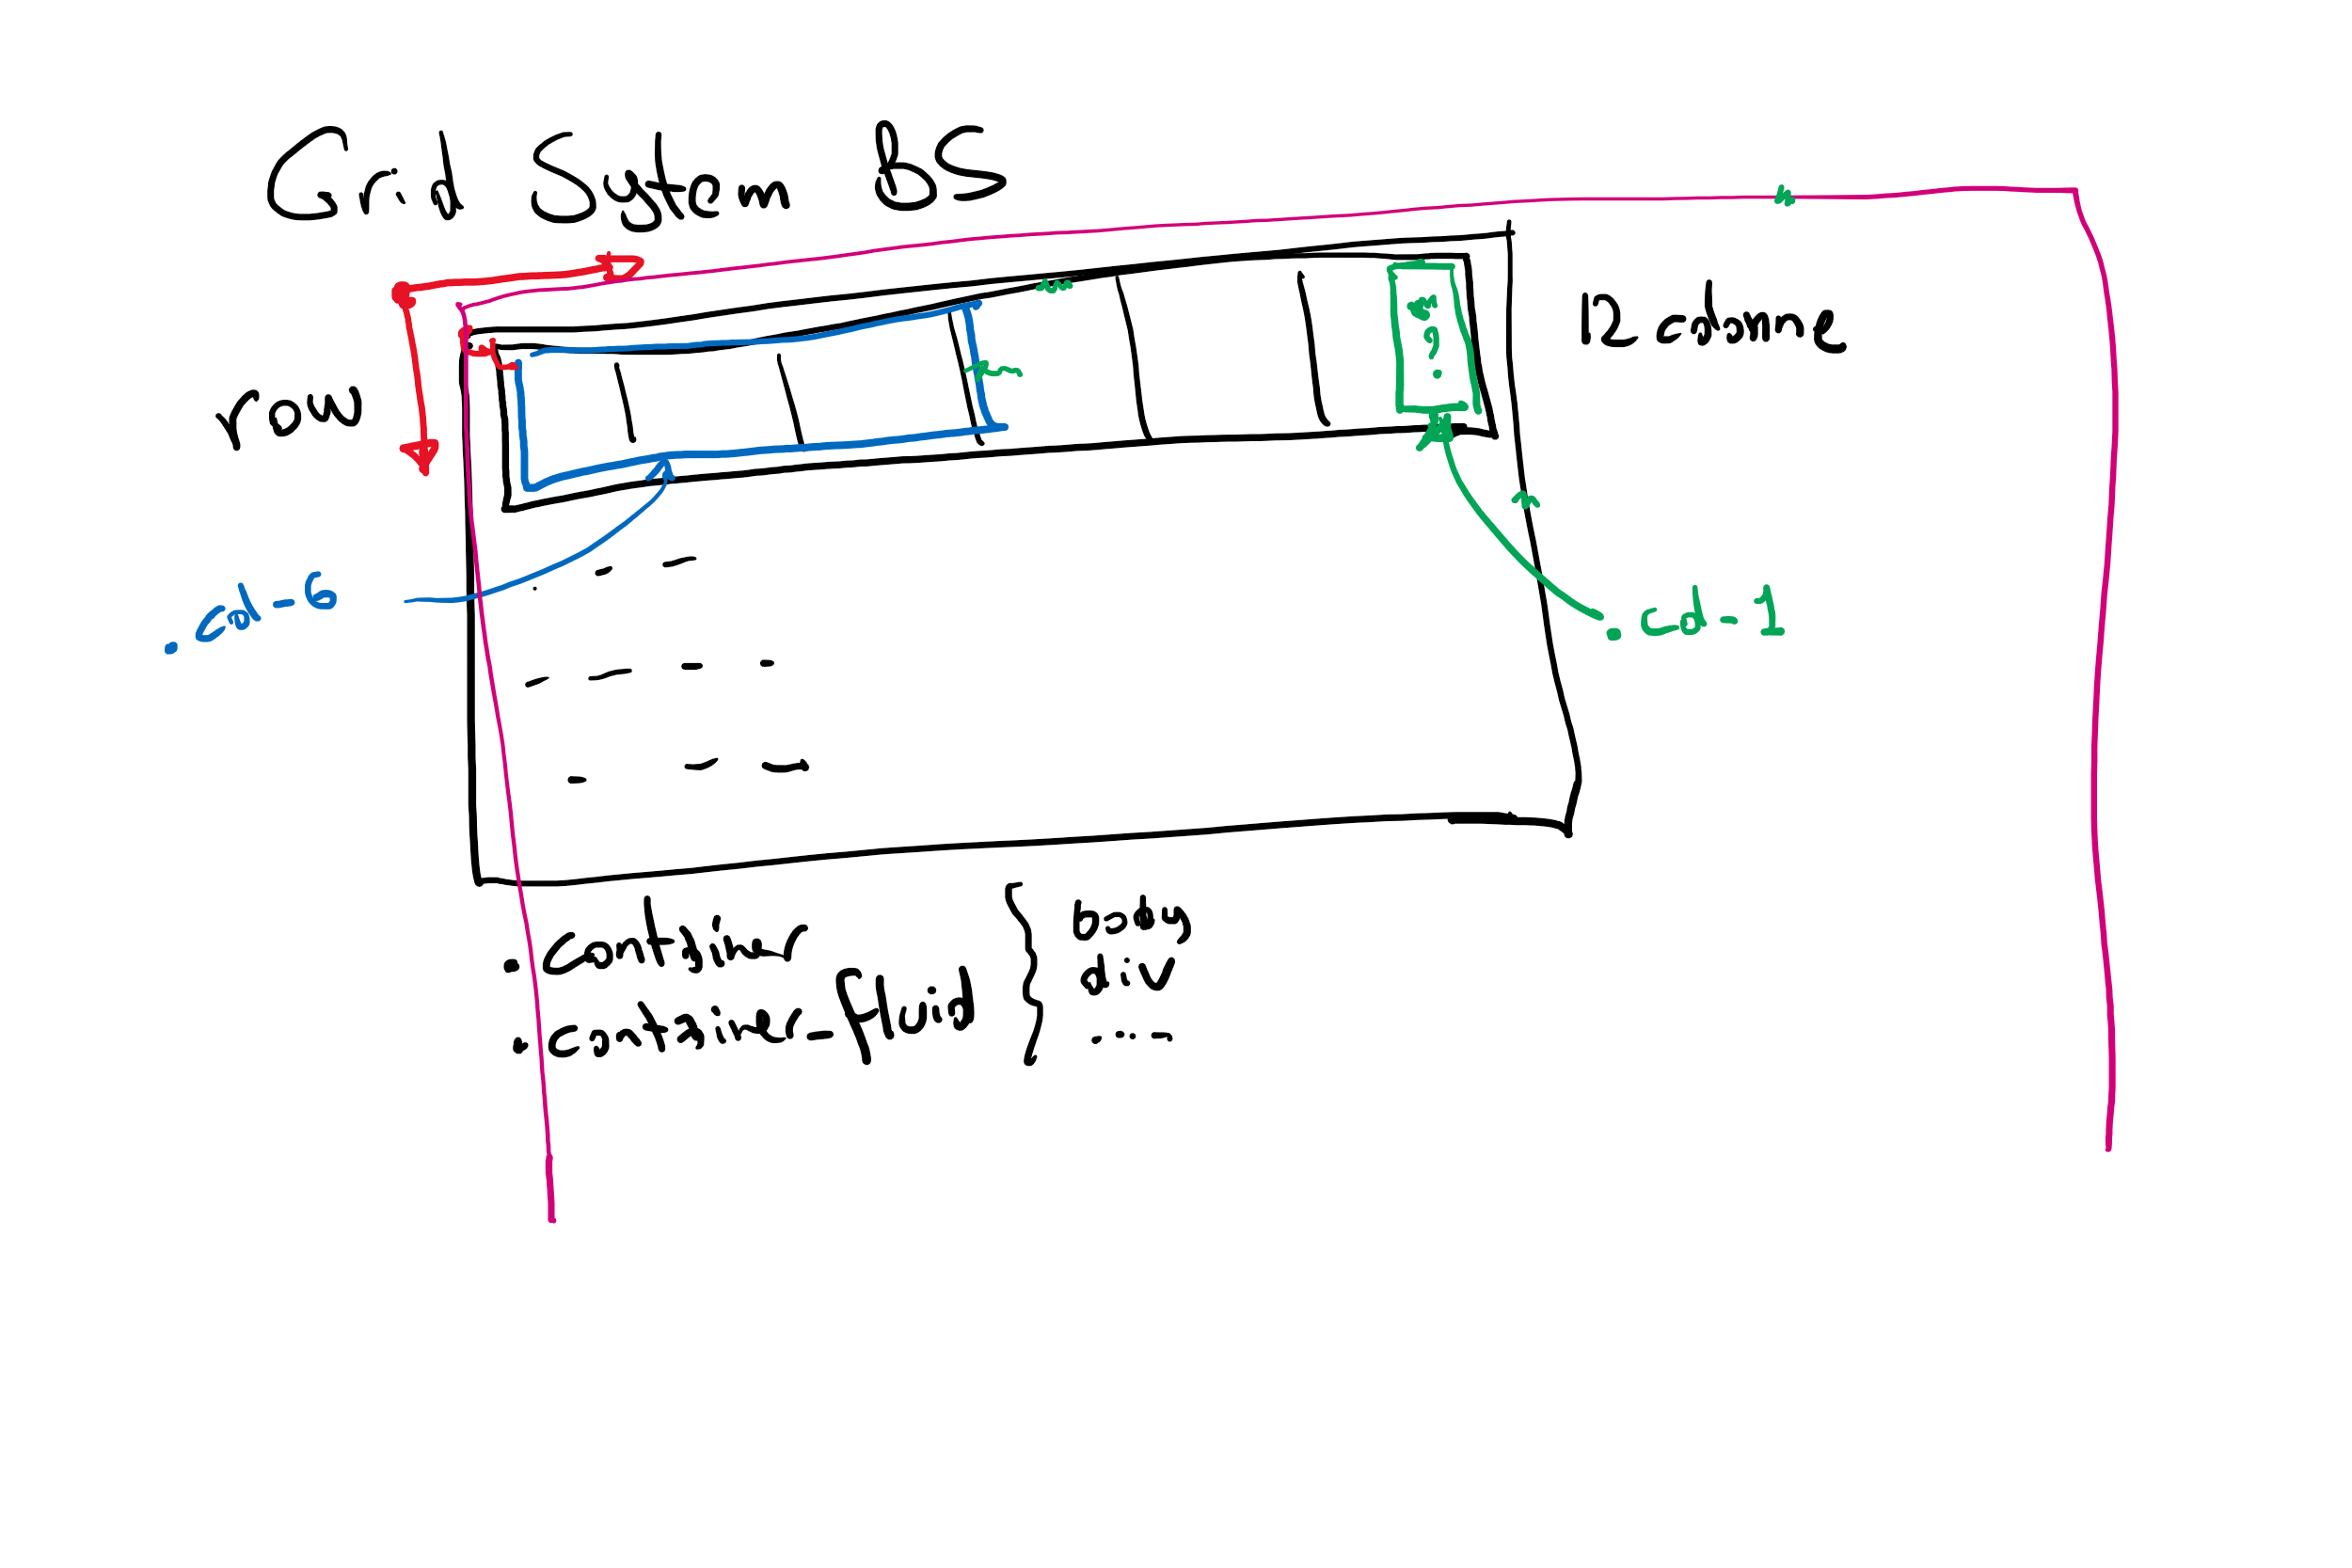 Grid System BS
row
12 colonne
.col-6
.col-1
.container
.container-fluid
body
div
....